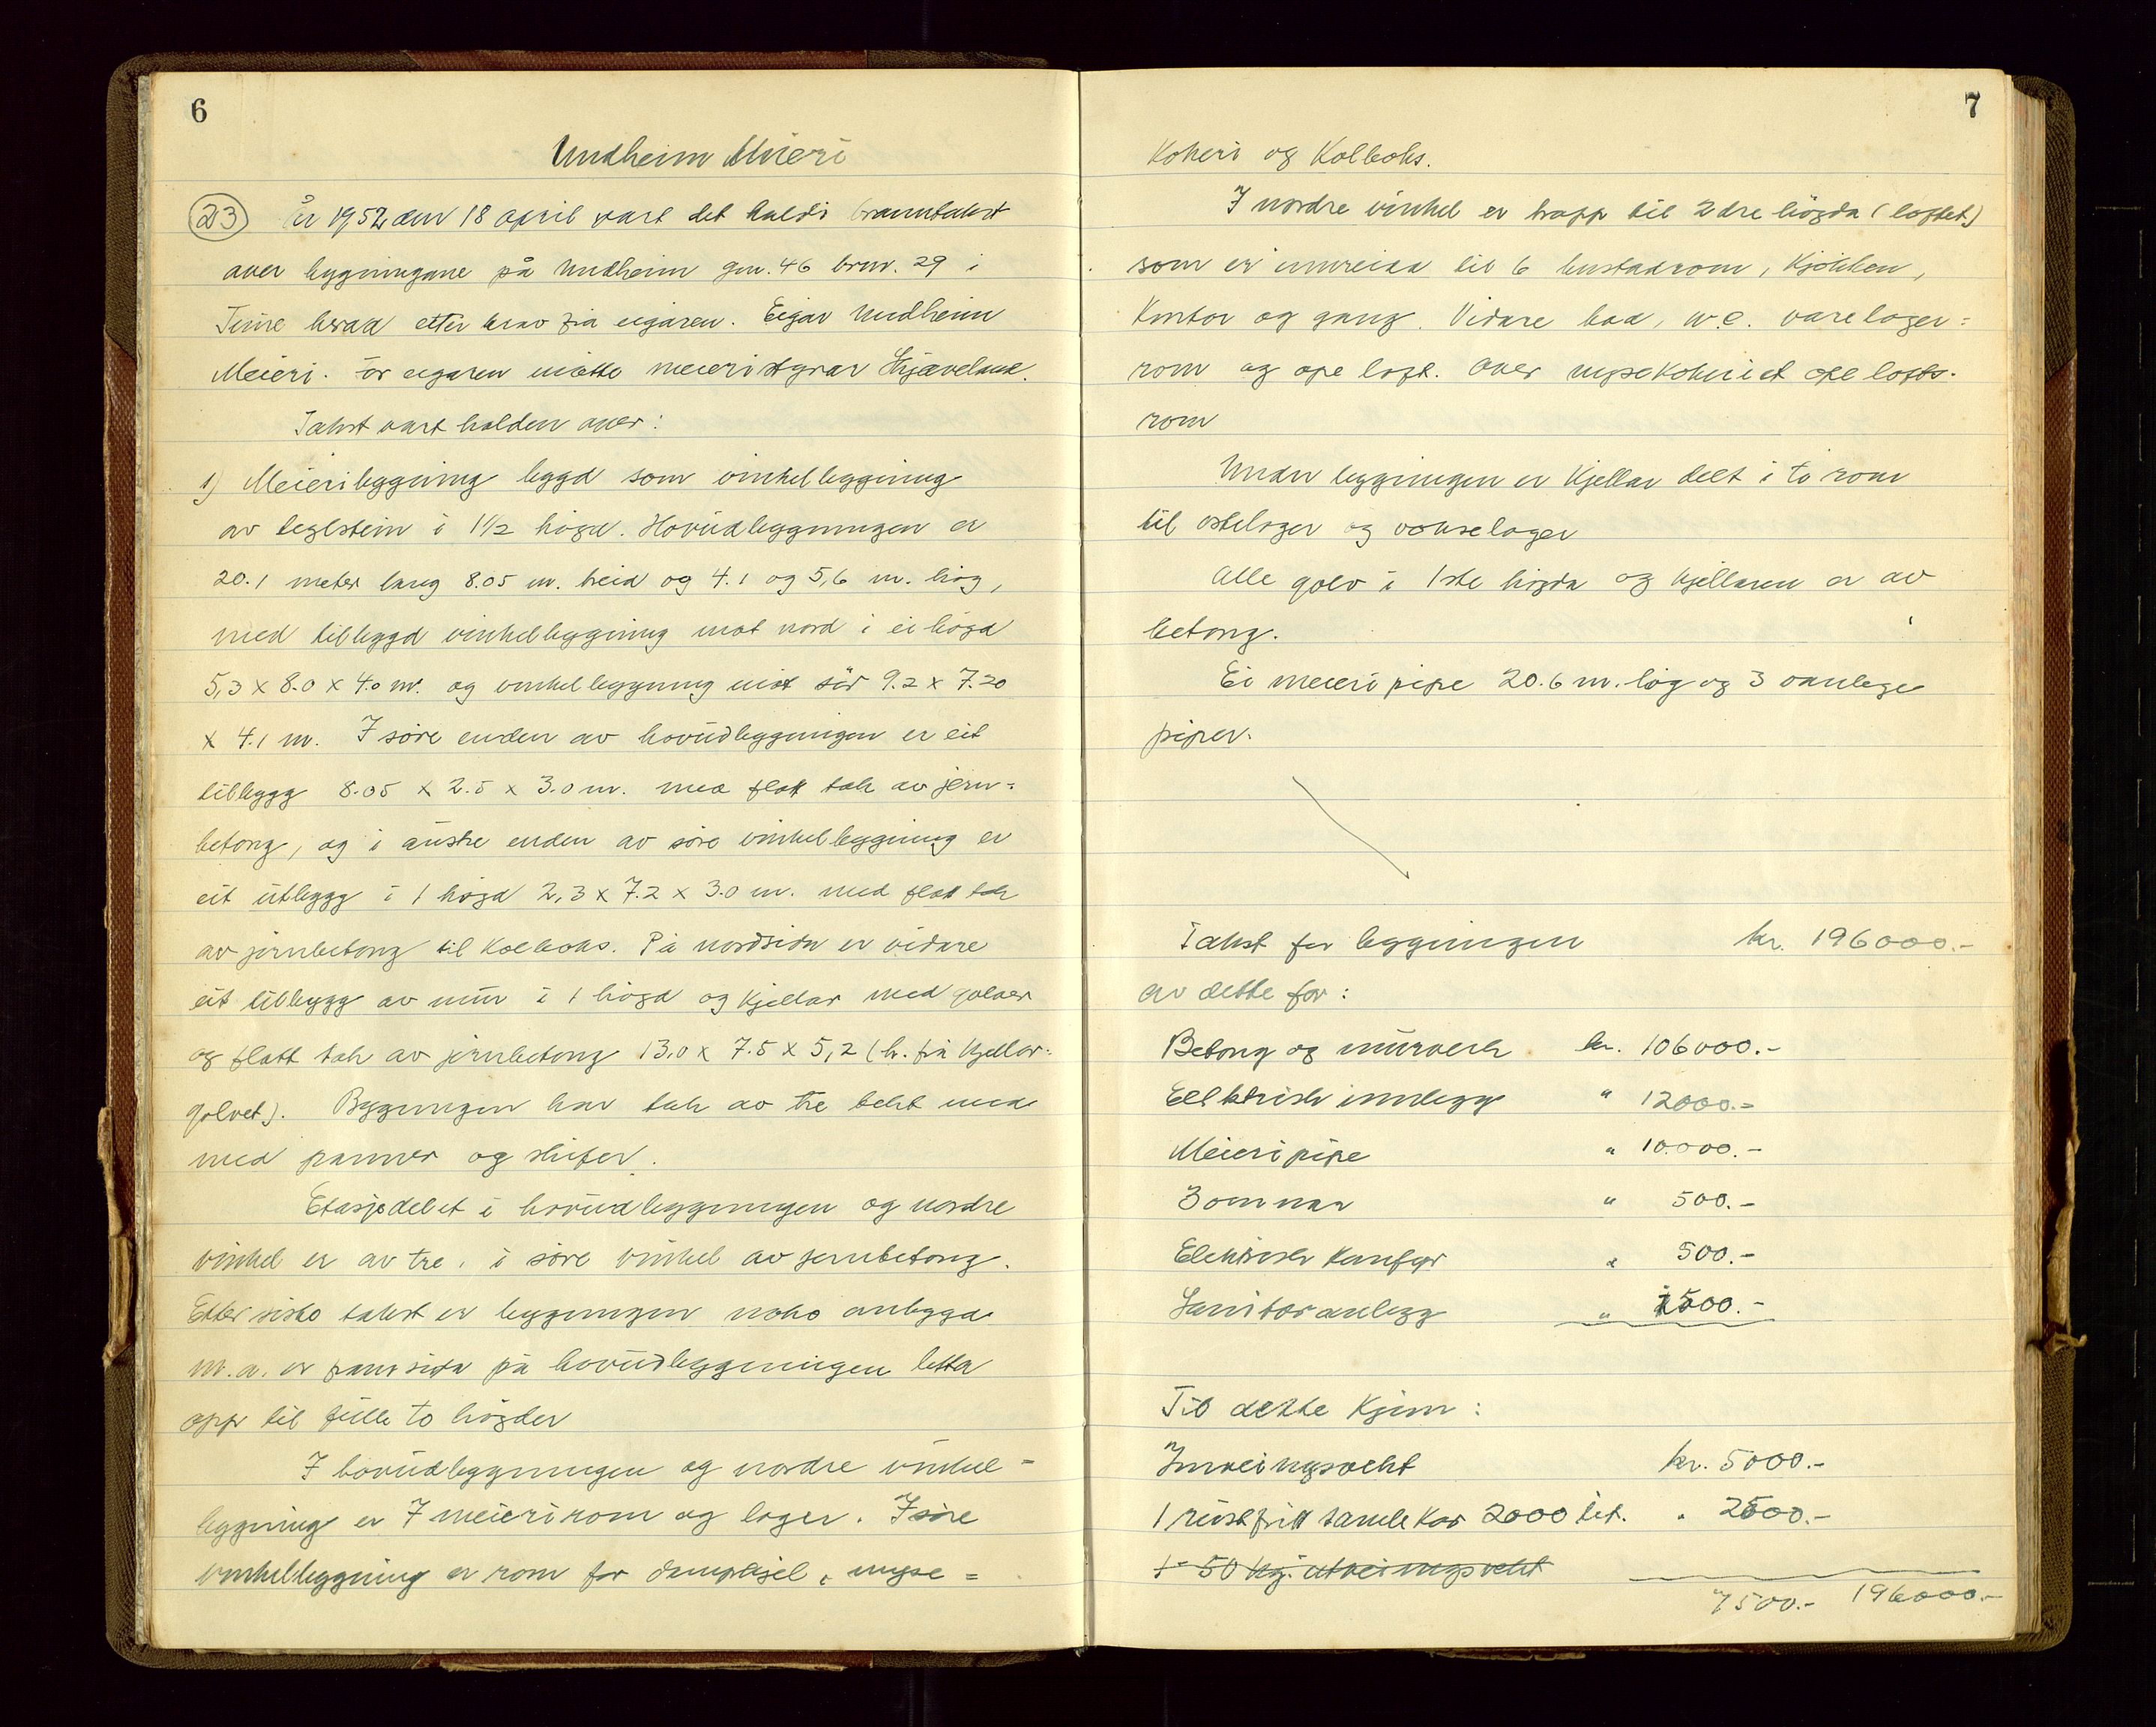 6
Undheim Meieri
23 År 1952 den 18 april vart det haldi branntakst
over bygningane på Undheim gnr. 46 brnr. 29 i
Time herad etter krav frå eigaren. Eigar Undheim
Meieri. For eigaren møtte meieristyrar Skjæveland.
Takst vart halden over:
1) Meieribygning bygd som vinkelbygning
av teglstein i 1 1/2 høgd. Hovudbygningen er
20.1 meter lang 8.05 m. breid og 4.1 og 5,6 m. høg,
med tilbygd vinkelbygning mot nord i ei høgd
5,3 x 8.0 x 4.0 m. og vinkelbygning mot sør 9.2 x 7.20
x 4.1 m. I søre enden av hovudbygningen er eit
tilbygg 8.05 x 2.5 x 3.0 m. med flatt tak av jern=
betong, og i austre enden av søre vinkelbygning er
eit utbygg i 1 høgd 2,3 x 7.2 x 3.0 m. med flatt tak
av jernbetong til kolboks. På nordsida er vidare
eit tilbygg av mur i 1 høgd og kjellar med golver
og flatt tak av jernbetong 13,0 x 7.5 x 5,2 (h. frå kjellar=
golvet). Bygningen har tak av tre tekt med
med panner og skifer.
Etasjedelet i hovudbygningen og nordre
vinkel er av tre, i søre vinkel av jernbetong.
Etter siste takst er bygningen noko ombygd
m.a. er framsida på hovudbygningen letta
opp til fulle to høgder
I hovudbygningen og nordre vinkel=
bygning er 7 meierirom og lager. I søre
vinkelbygning er rom for dampkjel, myse=
7
kokeri og kolboks.
I nordre vinkel er trapp til 2dre høgda (loftet)
som er innreidd til 6 bustadrom, kjøkken,
kontor og gang. Vidare bad, w.c. varelager=
rom og ope loft. Over mysekokeriet ope lofts-
rom
Under bygningen er kjellar delt i to rom
til ostelager og vokselager
Alle golv i 1ste høgda og kjellaren er av
betong.
Ei meieripipe 20.6 m. høg og 3 vanlege
piper.
Takst for bygningen kr. 196000.-
av dette for:
Betong og murverk kr. 106000.-
Elektrisk innlegg " 12000.-
Meieripipe " 10.000.-
3 omnar " 500.-
Elektrisk komfyr " 500.-
Sanitæranlegg " 1500.-
Til dette kjem:
Innveingsvekt kr. 5000.-
1 rustfritt samlekar 2000 lit. " 2500.-
1- 50 kg. utveingsvekt
7500.- 196000.-